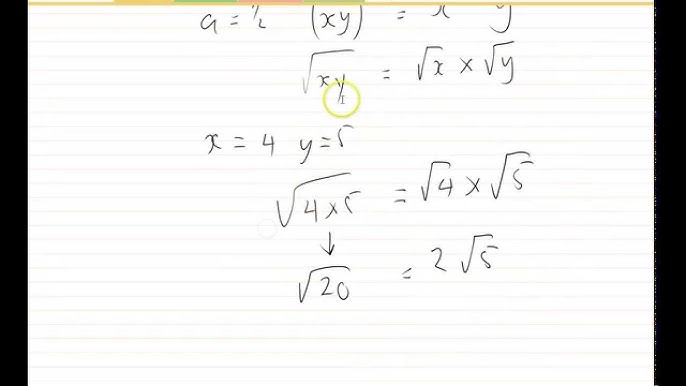 a = ½ (xy) = x y
√xy = √x × √y
x = 4 y = 5
√4×5 = √4 × √5
↓
√20 = 2√5